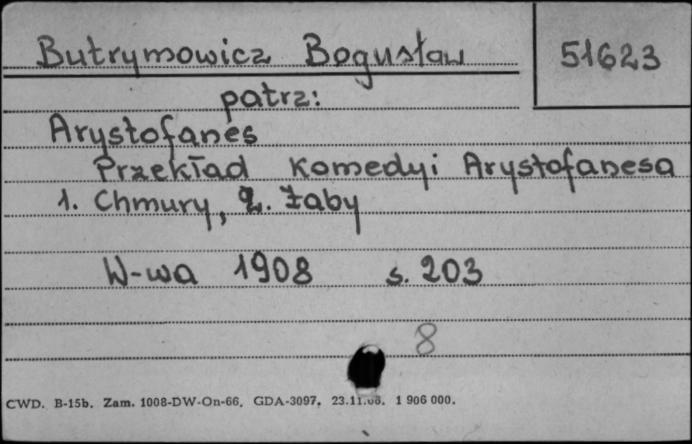 Butrymowicz Bogusław
51623
patrz:
Arystofanes
Przekład Komedyi Arystofanesa
1. Chmury, 2. Żaby
W-wa 1908 s. 203
8
CWD. B-15b. Zam. 1008-DW-On-66. GDA-3097. 1 906 000.